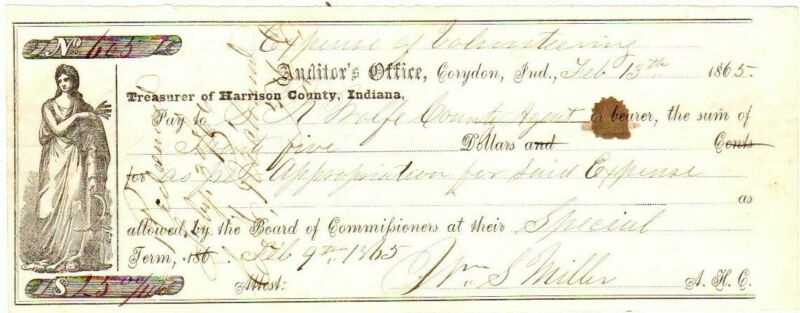 No. 605
Expense of Volunteering
Auditor's Office, Corydon, Ind., Feb 13th 1865.
Treasurer of Harrison County, Indiana,
Pay to S K Wolfe County Agent or bearer, the sum of
Twenty five Dollars and Cents
for as per Appropriation for Said Expense
as
allowed, by the Board of Commissioners at their Special
Term, 186 . Feb 9th 1865
$ 25 00/100 Attest: Wm S Miller A. H. C.